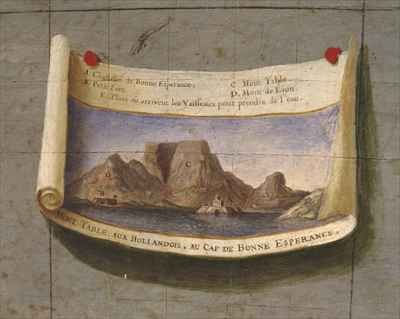 A. Citadelle de Bonne Esperance. C Mont Table.
B. Petit Fort. D. Mont de Lion.
E. Place ou arrivent les Vaisseaux pour prendre de l'eau.
C
D
MONT TABLE AUX HOLLANDOIS, AU CAP DE BONNE ESPERANCE.